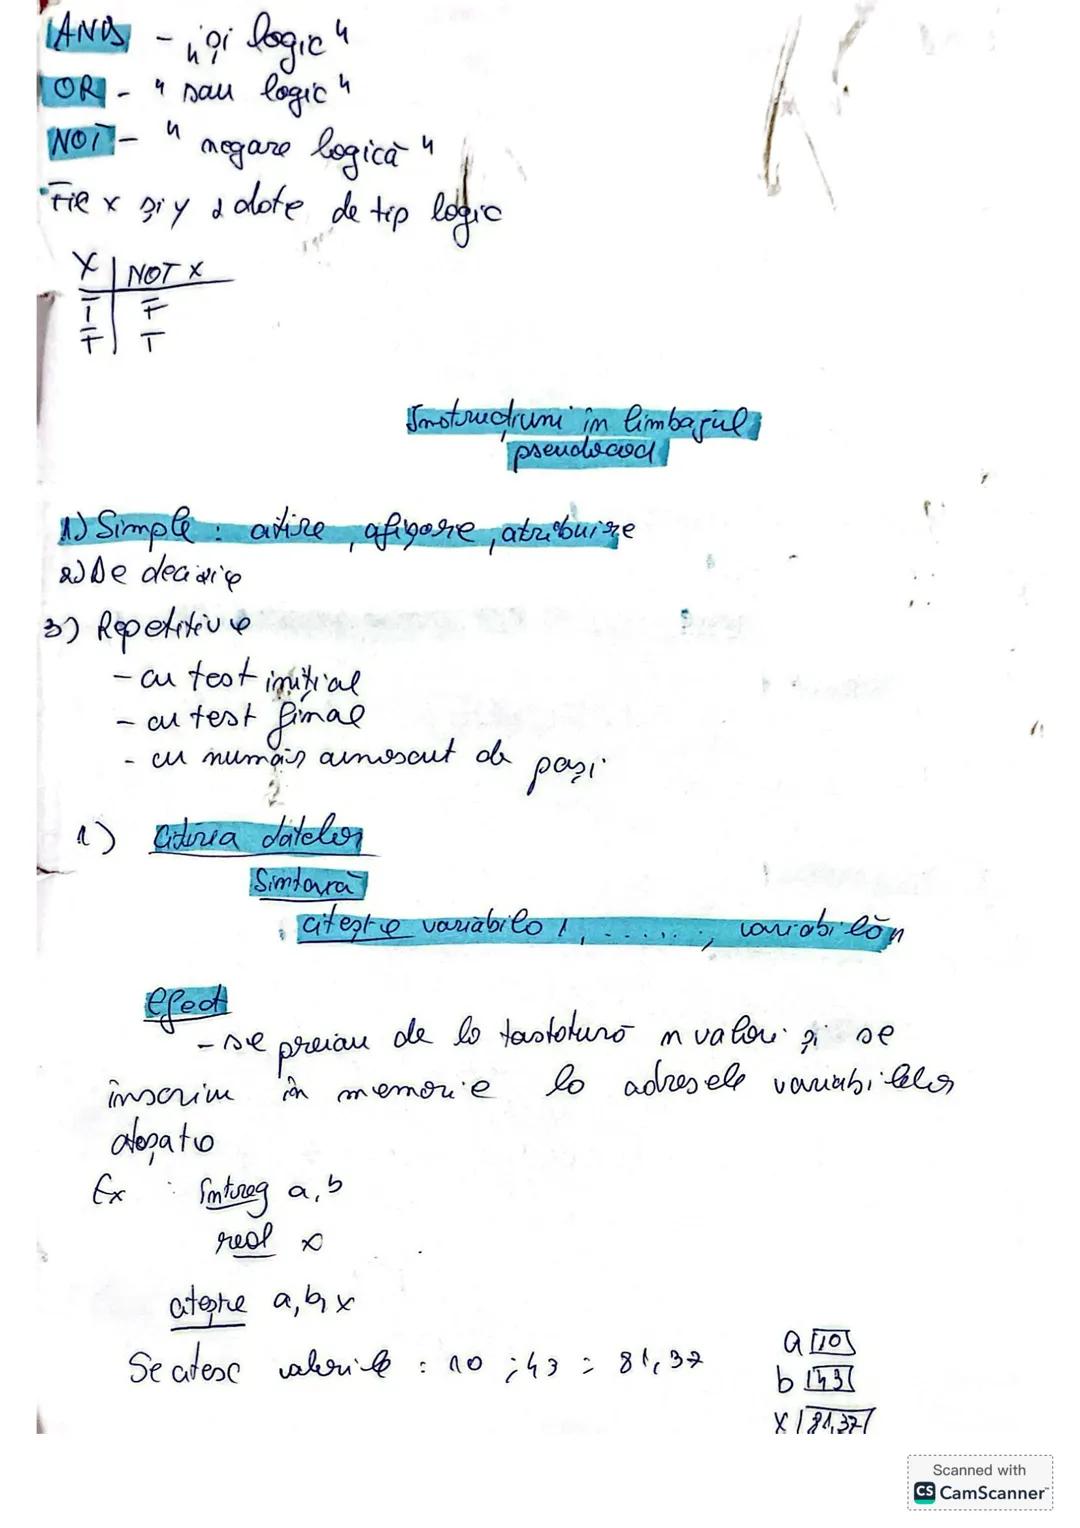 AND - „și logic"
OR - " sau logic"
NOT - " negare logică "
Fie x și y 2 date de tip logic
X | NOT X
T | F
F | T
Instrucțiuni în limbajul
pseudocod
1) Simple : citire, afișare, atribuire
2) De decizie
3) Repetitive
- cu test inițial
- cu test final
- cu număr cunoscut de pași
1) Citirea datelor
Sintaxă
citește variabilă 1, ......, variabilă n
Efect
- se preiau de la tastatură n valori și se
înscriu în memorie la adresele variabilelor
atașate
Ex : întreg a, b
real x
citește a, b, x
Se citesc valorile : 10 ; 43 ; 81,37
a 10
b 43
x 81,37
Scanned with
CS CamScanner